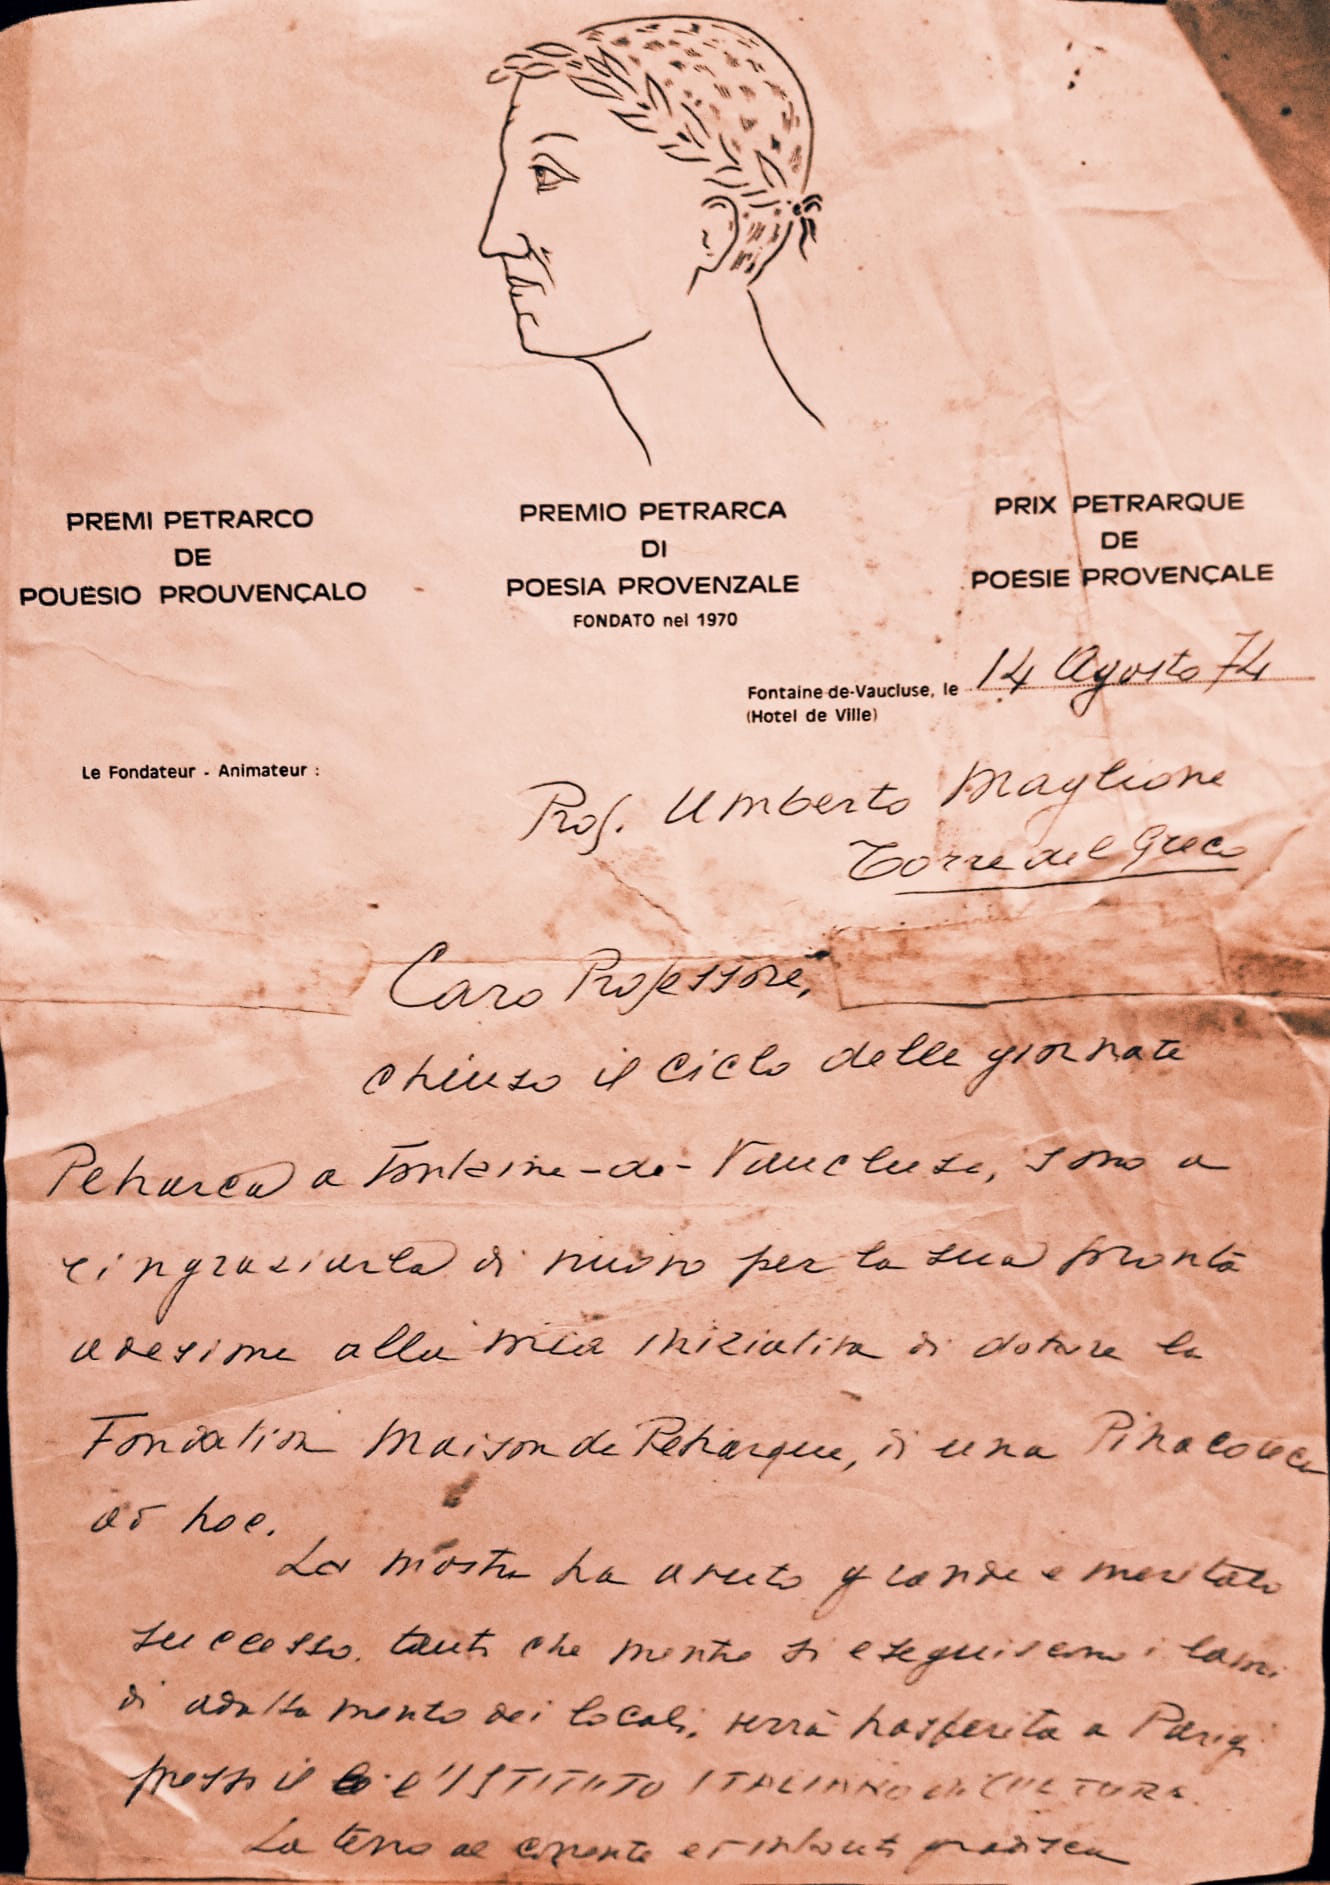 PREMI PETRARCO
DE
POUËSIO PROUVENÇALO
PREMIO PETRARCA
DI
POESIA PROVENZALE
FONDATO nel 1970
PRIX PETRARQUE
DE
POESIE PROVENÇALE
Fontaine-de-Vaucluse, le 14 Agosto 74
(Hotel de Ville)
Le Fondateur - Animateur :
Prof. Umberto Maglione
Torre del Greco
Caro Professore,
chiuso il ciclo delle giornate
Petrarca a Fontaine-de-Vaucluse, sono a
ringraziarla di nuovo per la sua pronta
adesione alla mia iniziativa di dotare la
Fondation Maison de Petrarque, di una Pinacoteca
ad hoc.
La mostra ha avuto grande e meritato
successo. tanto che mentre si eseguiscono i lavori
di adattamento dei locali, verrà trasferita a Parigi
presso il l'ISTITUTO ITALIANO di CULTURA.
La terrò al corrente ed intanto gradisca